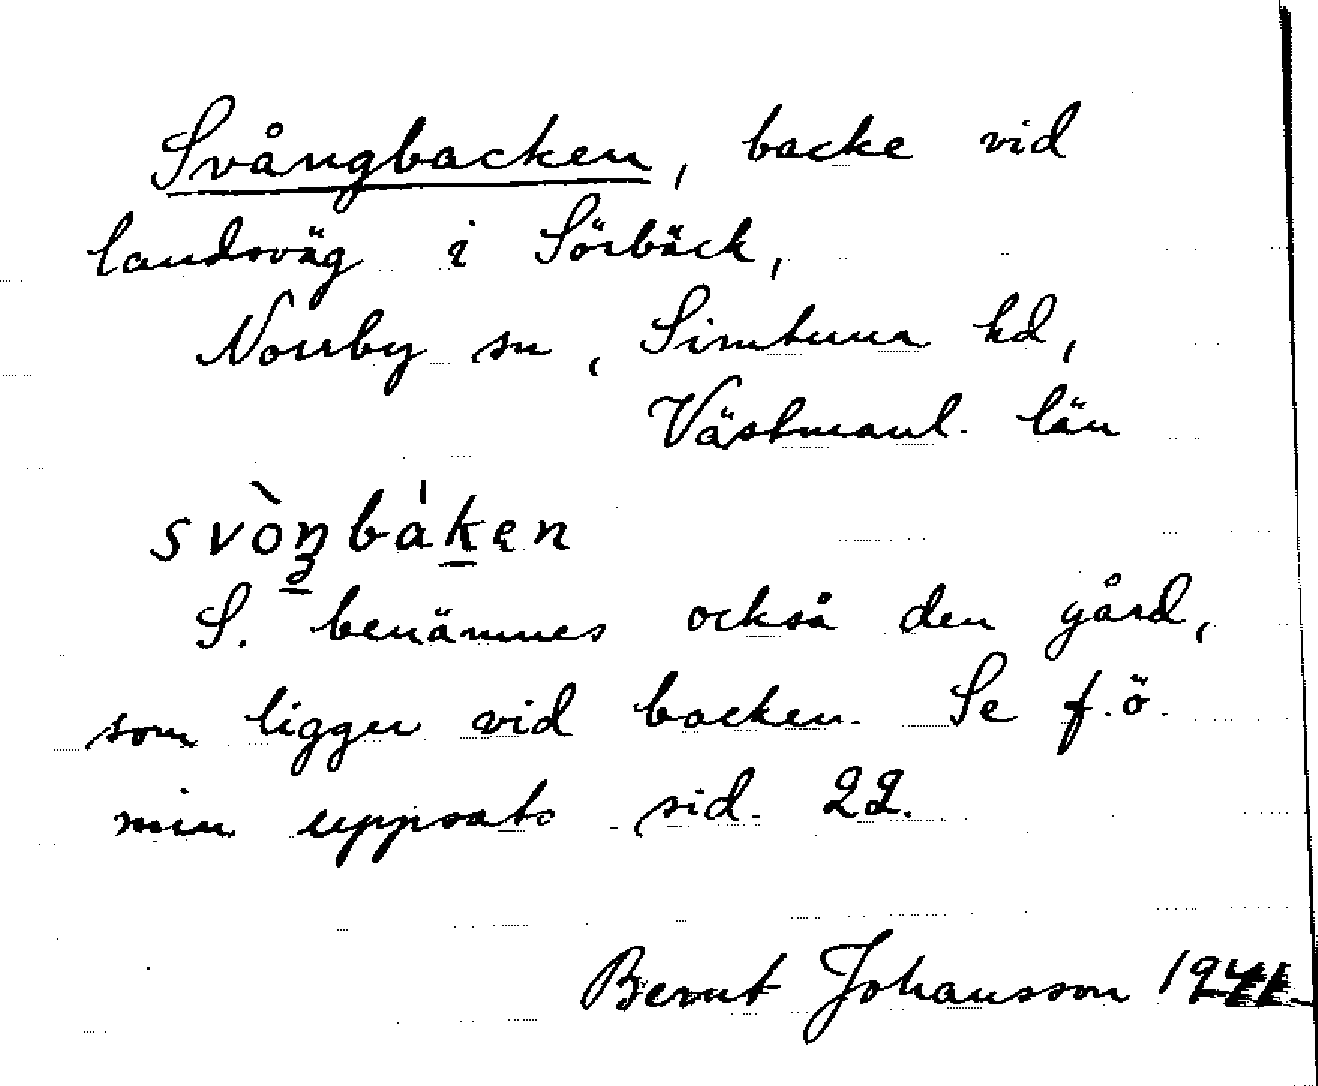 Svångbacken, backe vid
landsväg i Sörbäck,
Norrby sn, Simtuna hd,
Västmanl. län
svòŋbákęn
S. benämnes också den gård,
som ligger vid backen. Se f.ö.
min uppsats sid. 22.
Bernt Johansson